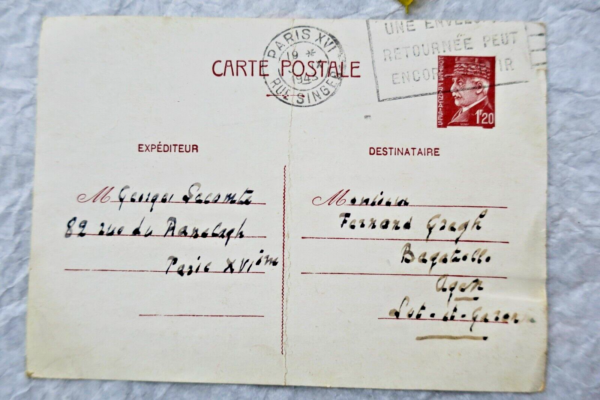 PARIS XVI
19 *
1943
RUE SINGER
UNE ENVEL
RETOURNÉE PEUT
ENCOR IR
CARTE POSTALE
1F20
EXPÉDITEUR
DESTINATAIRE
M Georges Lecomte
82 rue du Ranelagh
Paris XVIème
Monsieur
Fernand Gregh
Bagatelle
Agen
Lot-et-Garonne